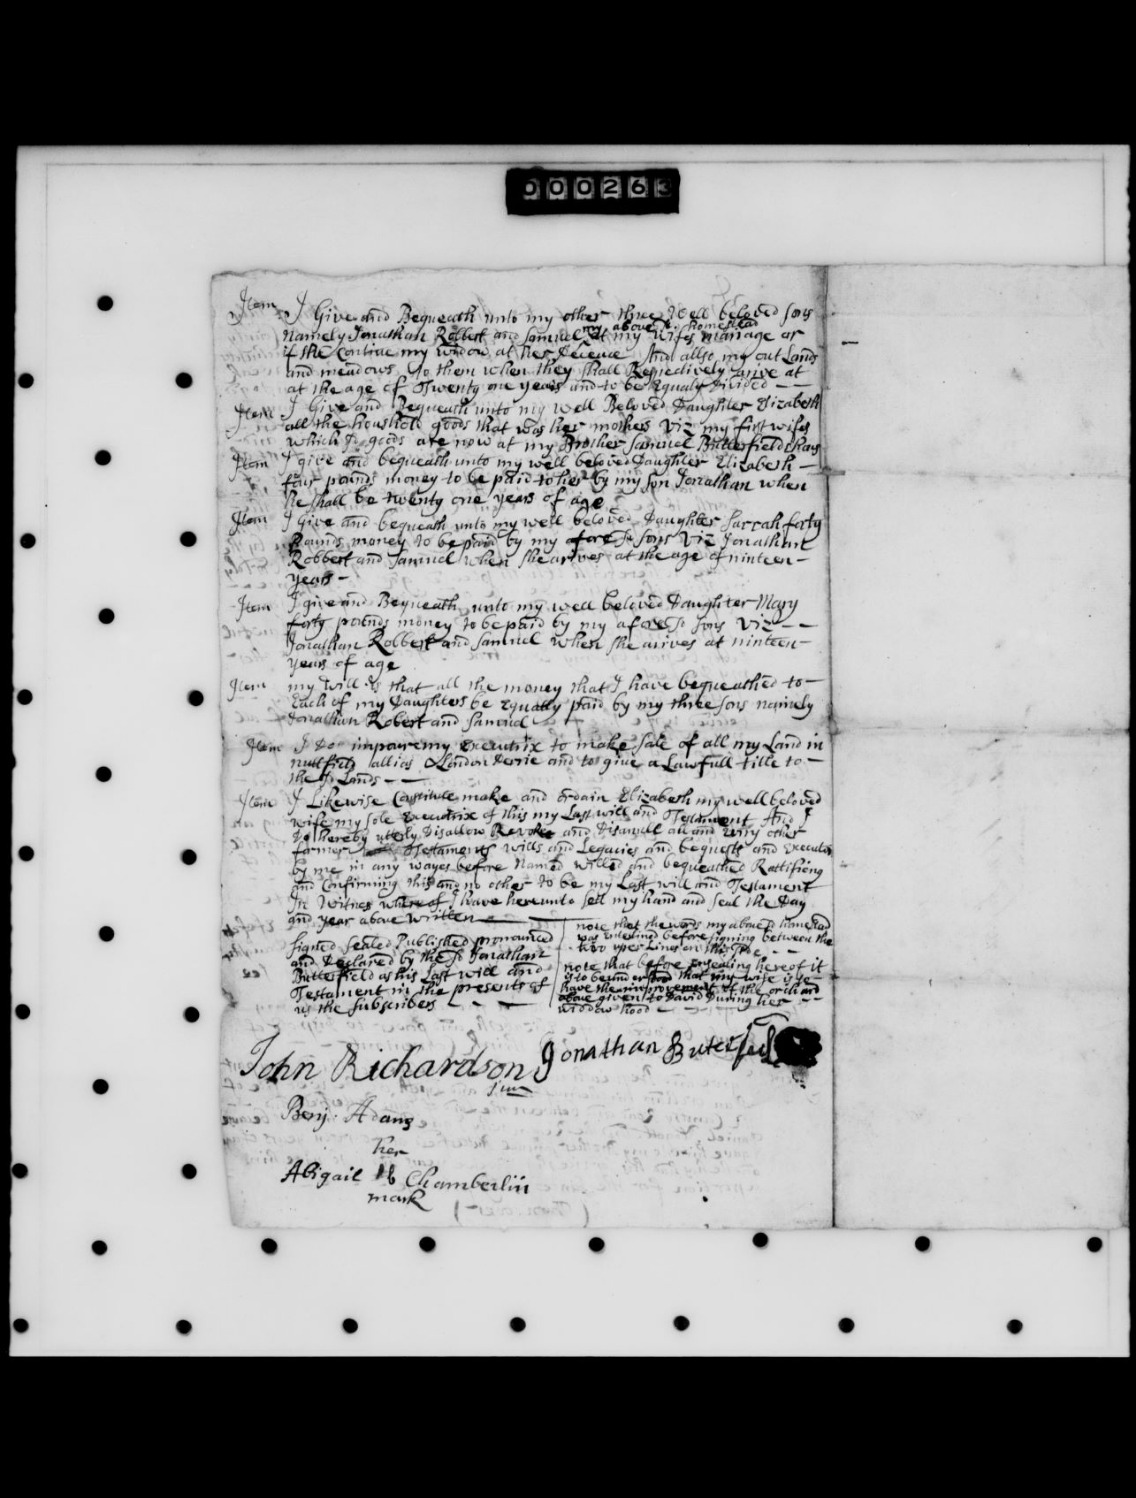 000263
Item I Give and Bequeath unto my other three Well beloved sons
namely Jonathan Robbert and Samuel my above sd homestead at my wifes marriage or
if she Contine my widow at her Decence And allso my out Lands
and meadows to them when they shall Respectively arive at
at the age of Twenty one years and to be Equaly Divided - -
Item I Give and Bequeath unto my well Beloved Daughter Elizabeth
all the houshold goods that was her mothers Viz my first wifes
which sd goods are now at my Brother Samuel Butterfields hous
Item I give and bequeath unto my well beloved Daughter Elizabeth -
four pounds money to be paid to her by my son Jonathan when
he shall be twenty one years of age
Item I Give and bequeath unto my well beloved Daughter Sarrah forty
Pounds money to be paid by my afore sd sons Viz Jonathan
Robbert and Samuel when she arives at the age of ninteen -
years -
Item I give and Bequeath unto my well beloved Daughter Mary
forty pounds money to be paid by my afore sd sons Viz - -
Jonathan Robbert and Samuel when she arives at ninteen -
years of age
Item my will is that all the money that I have bequeathed to -
Each of my Daughters be Equally paid by my three sons namely
Jonathan Robert and Samuel
Item I Do impour my Executrix to make sale of all my Land in
nuttfield allias London derrie and to give a Lawfull title to -
the sd Lands - -
Item I Likewise Constitute make and ordain Elizabeth my well beloved
wife my sole Executrix of this my Last will and Testament And I
Do hereby utterly Disallow Revoke and Disanull all and Every other
former Testaments wills and Legacies and bequests and Executors
by me in any wayes before Named willed and bequeathed Rattifieing
and Confirming this and no other to be my Last will and Testament
In Witnes whereof I have hereunto sett my hand and seal the Day
and year above written
Signed Sealed Published pronounced
and Declared by the sd Jonathan
Butterfield as his Last will and
Testament in the presents of
us the subscribers
note that the words my above sd homestead
was Enterlined before signing between the
two uper Lines on this side - -
note that before ensealing hereof it
is to be understood that my wife is to
have the improvement of the orchard
above given to David During her - -
widdow hood
John Richardson
Junr
Jonathan Buterfield
Benj: Adams
her
Abigail Chamberlin
mark